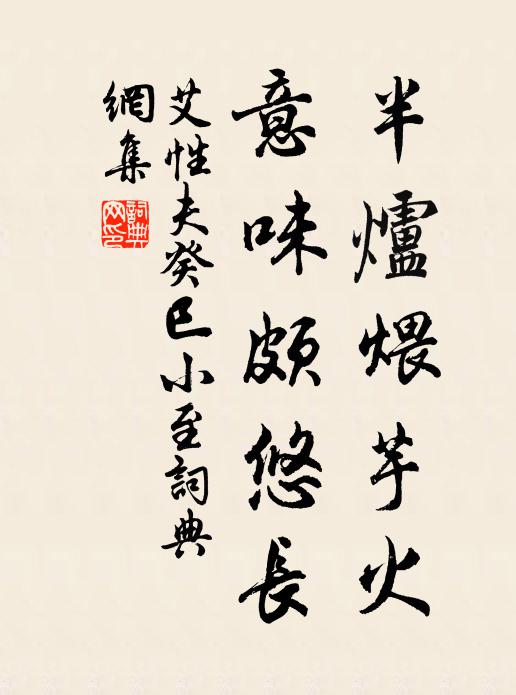 半爐煨芋火
意味頗悠長
艾性夫癸巳小至詞典
網集
詞典網印